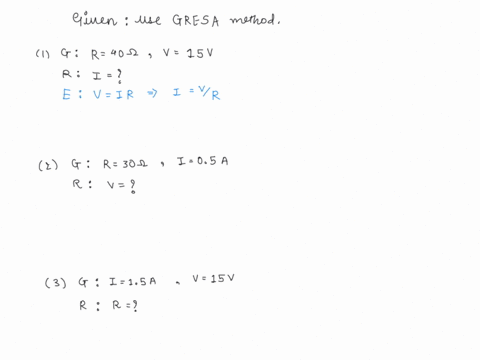 Given : use GRESA method.
(1) G: R=40Ω , V = 15V
R: I = ?
E: V=IR ⇒ I = V/R
(2) G: R=30Ω , I=0.5A
R: V=?
(3) G: I=1.5A , V=15V
R: R=?